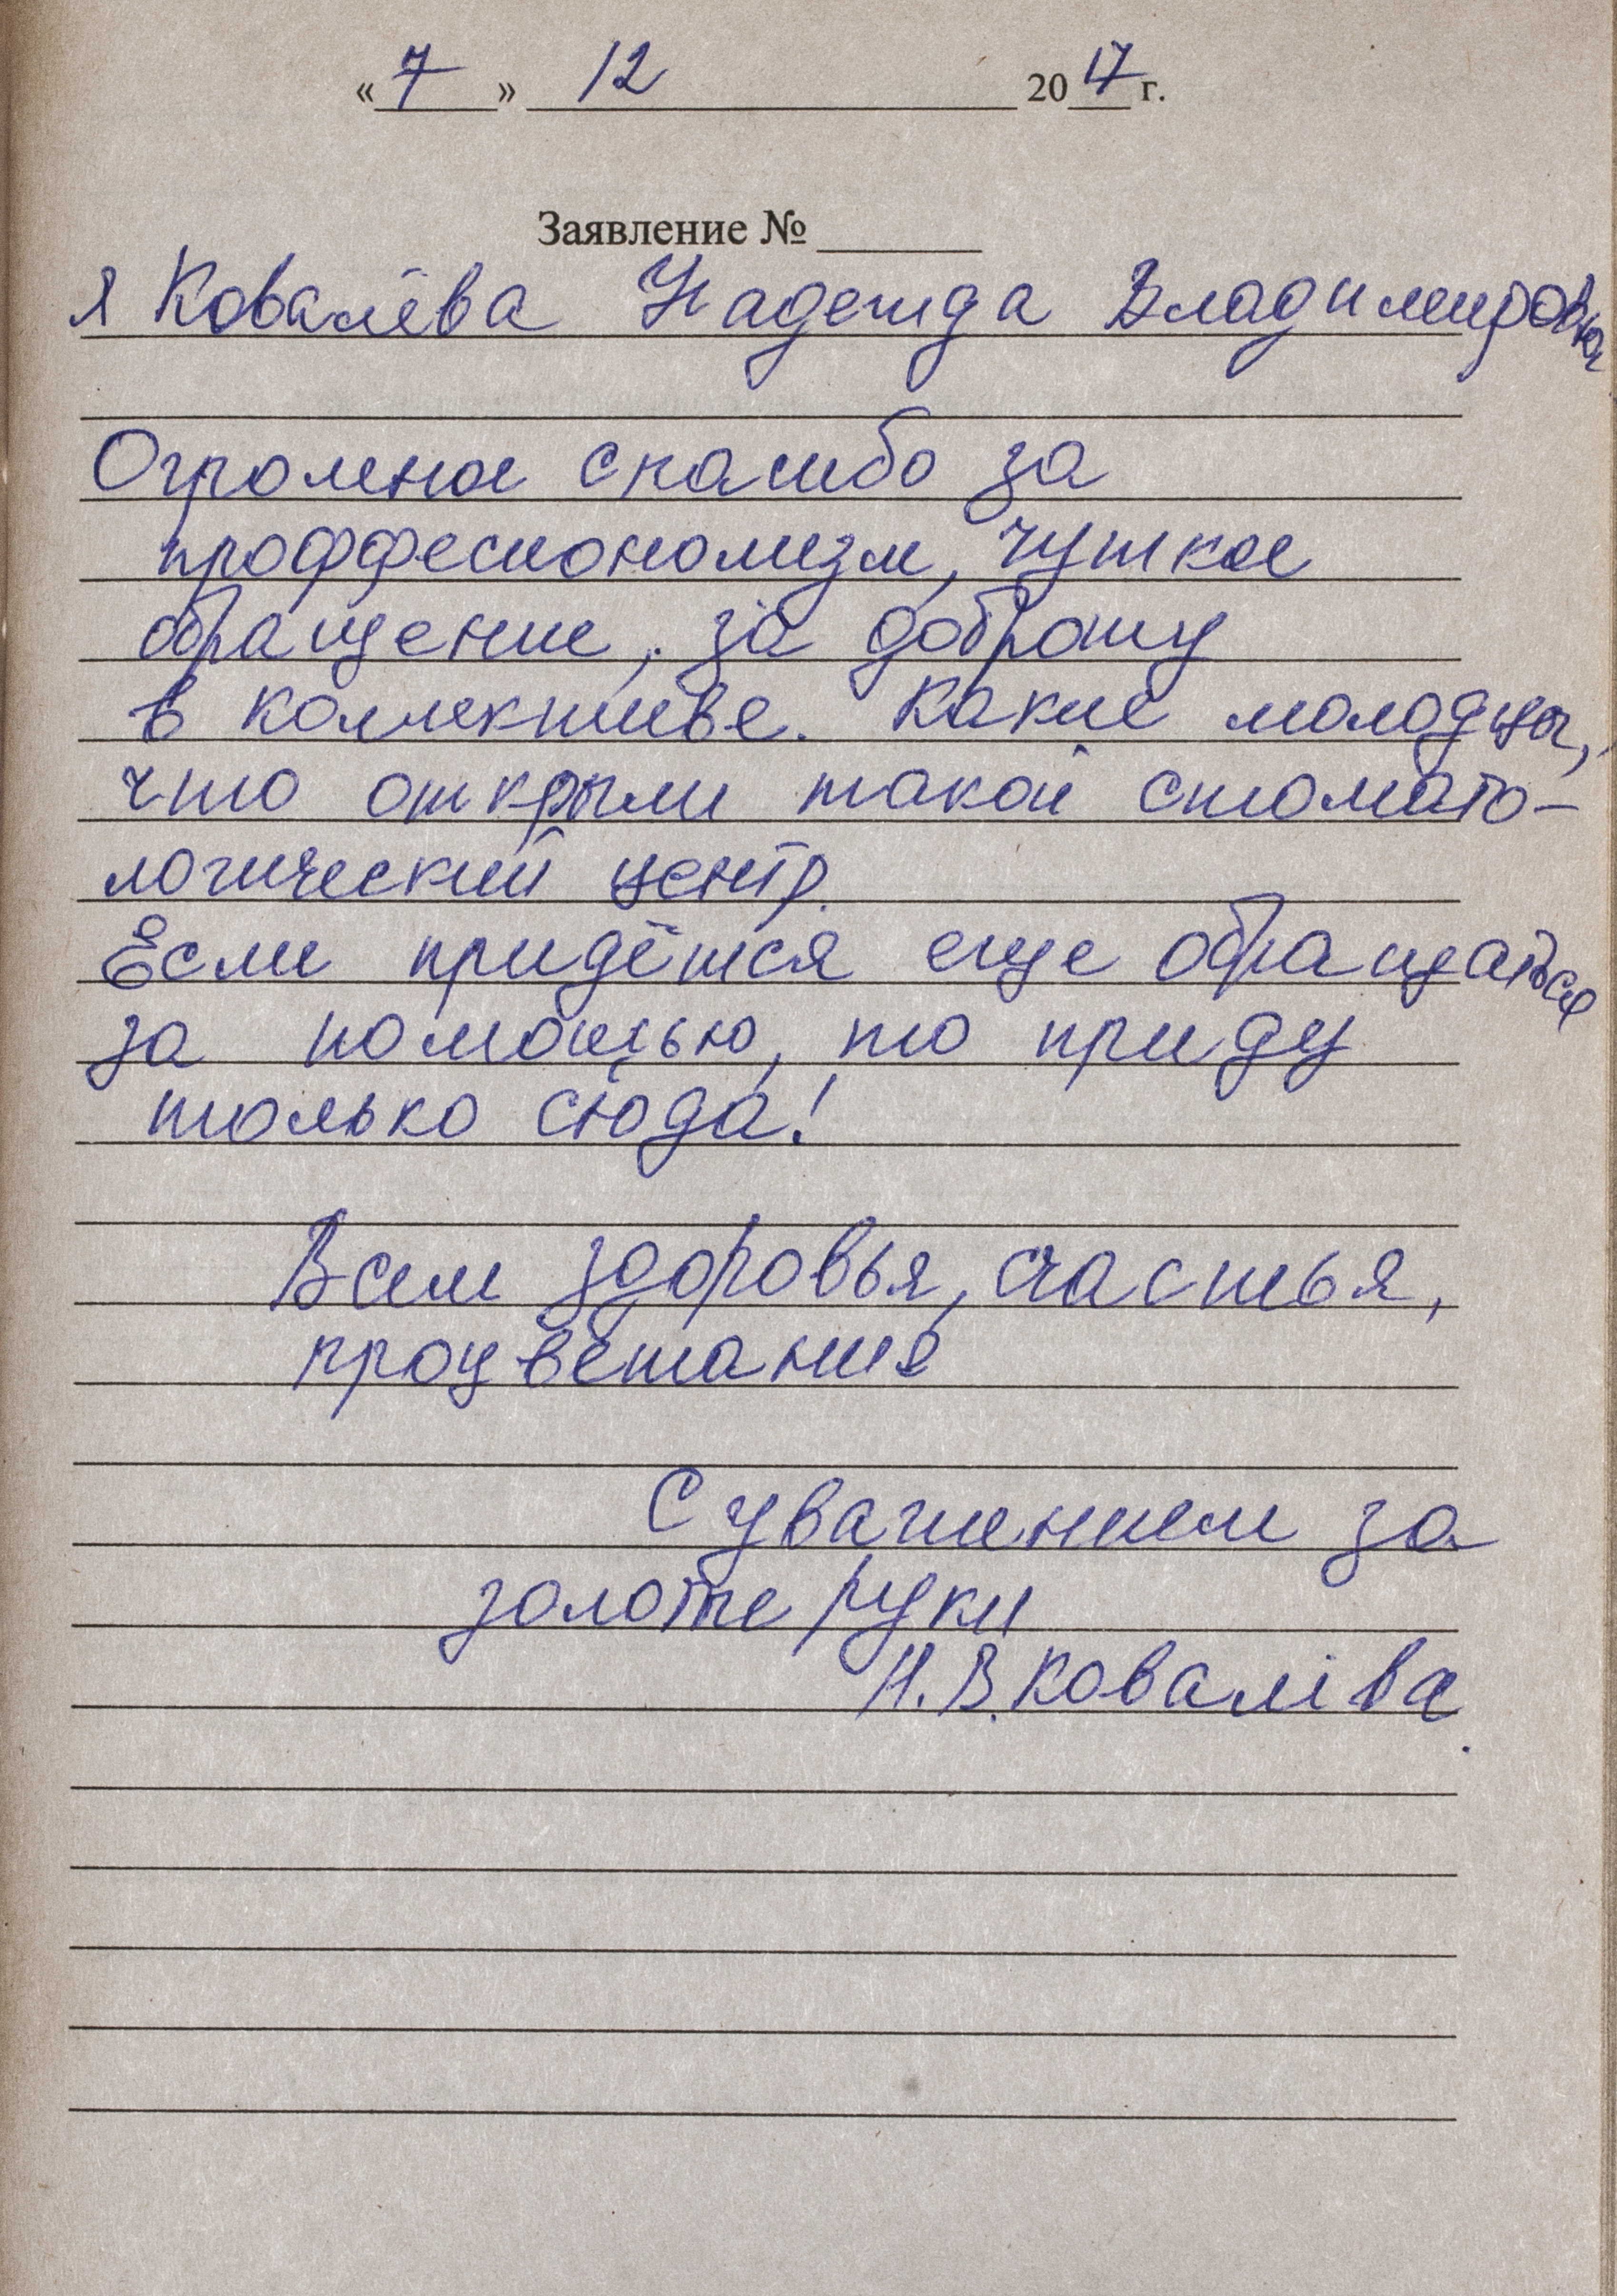 « 7 » 12 2017 г.
Заявление № ______
Я Ковалёва Надежда Владимировна
Огромное спасибо за
проффесионализм, чуткое
обращение, за доброту
в коллективе. Какие молодцы,
что открыли такой стомато-
логический центр.
Если придётся еще обращаться
за помощью, то приду
только сюда!
Всем здоровья, счастья,
процветания
С уважением за
золотые руки
Н.В. Ковалёва.